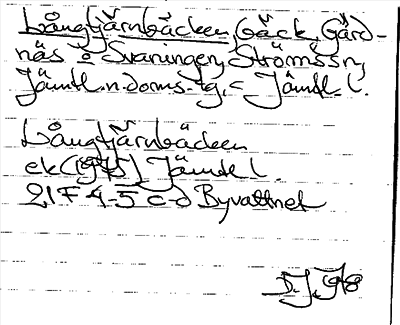 Långtjärnbäcken, bäck, Gärd-
näs o Svaningen, Ströms sn,
Jämtl. n. doms. tg, = Jämtl. l.
Långtjärnbäcken
ek (1975) Jämtl l.
21F 4-5 c-d Byvattnet
D.J. 98